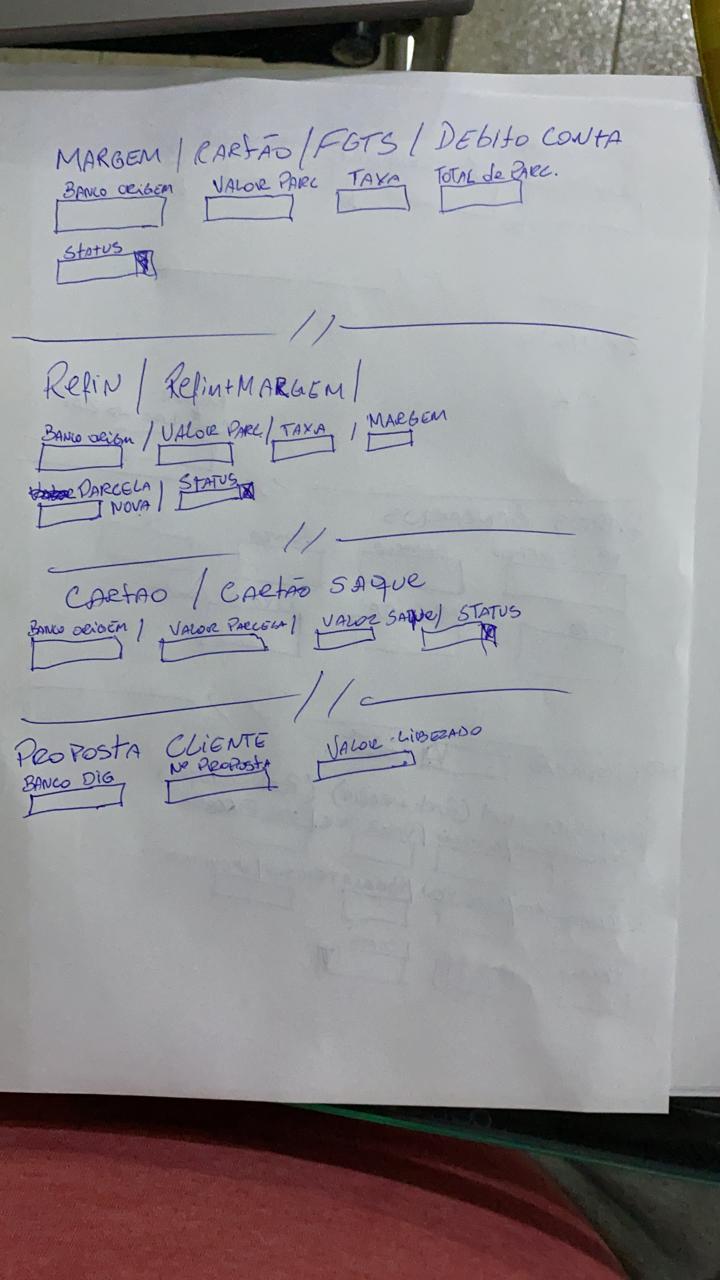 MARGEM / CARTÃO / FGTS / DEBITO CONTA
BANCO ORIGEM VALOR PARC TAXA TOTAL de PARC.
STATUS
//
Refin / Refin+MARGEM /
BANCO ORIGEM / VALOR PARC / TAXA / MARGEM
PARCELA NOVA / STATUS
//
CARTAO / CARTÃO SAQUE
BANCO ORIGEM / VALOR PARCELA / VALOR SAQUE / STATUS
//
PROPOSTA CLIENTE
BANCO DIG Nº PROPOSTA VALOR LIBERADO